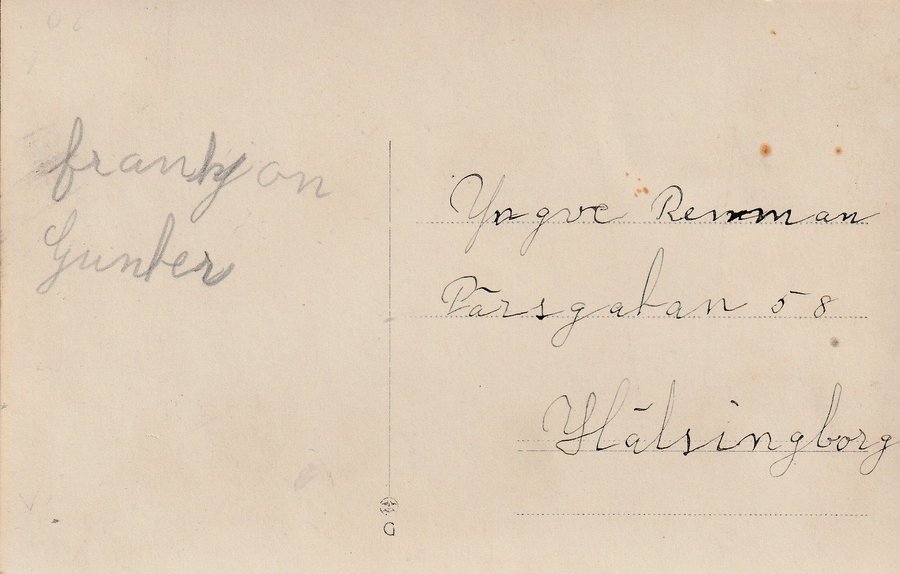 från
Gunter
Yngve Remman
Pärsgatan 58
Hälsingborg
G